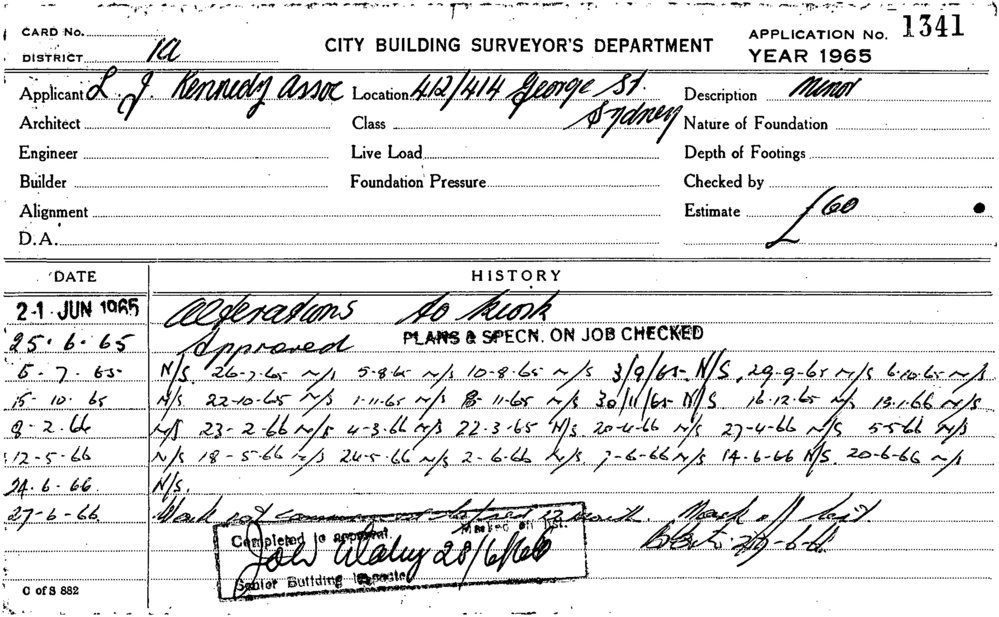 CARD No. APPLICATION No. 1341
DISTRICT 1a CITY BUILDING SURVEYOR'S DEPARTMENT YEAR 1965
Applicant L. J. Kennedy Assoc Location 412/414 George St. Sydney Description Minor
Architect Class Nature of Foundation
Engineer Live Load Depth of Footings
Builder Foundation Pressure Checked by
Alignment Estimate £60
D.A.
DATE HISTORY
21 JUN 1965 Alterations to Kiosk
25.6.65 Approved PLANS & SPECN. ON JOB CHECKED
5.7.65 N/S. 26-7-65 N/S 5-8-65 N/S 10-8-65 N/S 3/9/65 N/S. 29-9-65 N/S 6-10-65 N/S
15-10-65 N/S. 22-10-65 N/S 1-11-65 N/S 18-11-65 N/S 30/11/65 N/S 16-12-65 N/S 13-1-66 N/S
8-2-66 N/S 23-2-66 N/S 4-3-66 N/S 22-3-65 N/S 20-4-66 N/S 27-4-66 N/S 5-5-66 N/S
12-5-66 N/S 18-5-66 N/S 24-5-66 N/S 2-6-66 N/S. 7-6-66 N/S 14-6-66 N/S. 20-6-66 N/S
24.6.66 N/S.
27-6-66 Work not commenced 12 month. Mark off list.
Completed to approval. Marked off list.
28/6/66
Senior Building Inspector
C of S 882